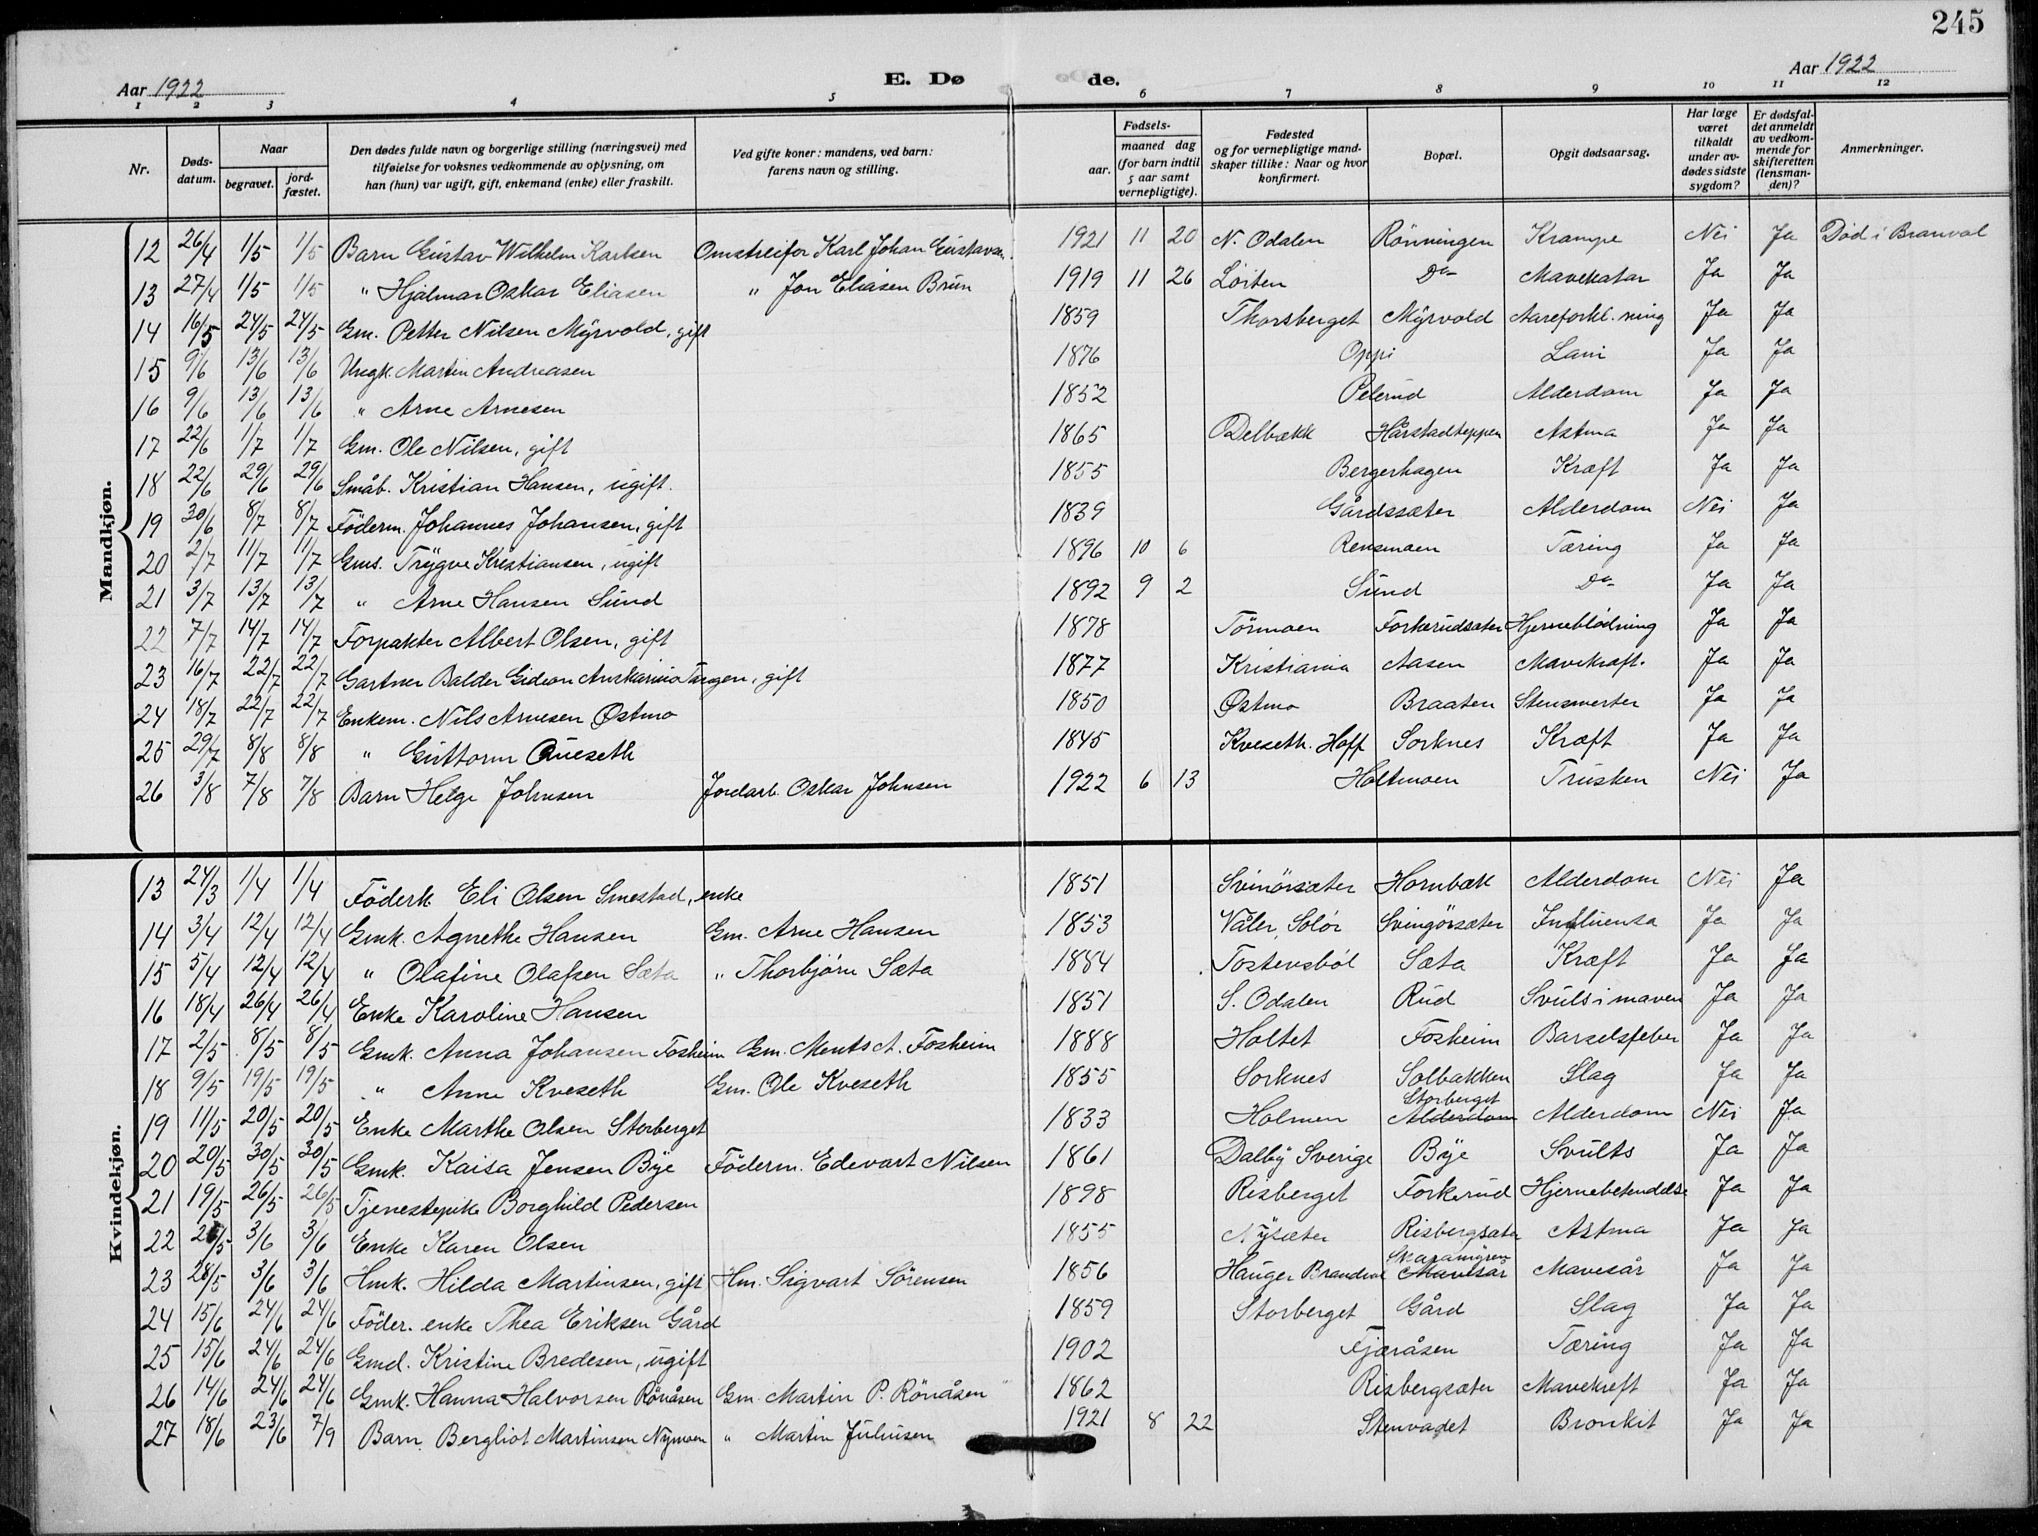 245
Aar 1922 E. Dø de. Aar 1922
1 2 3 4 5 6 7 8 9 10 11 12
Nr. Døds-datum. Naar begravet. jord-fæstet. Den dødes fulde navn og borgerlige stilling (næringsvei) med tilføielse for voksnes vedkommende av oplysning, om han (hun) var ugift, gift, enkemand (enke) eller fraskilt. Ved gifte koner: mandens, ved barn: farens navn og stilling. Fødsels- aar. maaned dag (for barn indtil 5 aar samt vernepligtige). Fødested og for vernepligtige mand-skaper tillike: Naar og hvor konfirmert. Bopæl. Opgit dødsaarsag. Har læge været tilkaldt under av-dødes sidste sygdom? Er dødsfal-det anmeldt av vedkom-mende for skifteretten (lensman-den)? Anmerkninger.
Mandkjøn.
12 26/4 1/5 1/5 Barn Gustav Wilhelm Karlsen Omstreifer Karl Johan Gustavsen 1921 11 20 N. Odalen Rönningen Krampe Nei Ja Död i Branval
13 27/4 1/5 1/5 " Hjalmar Oskar Eliasen " Jon Eliasen Brun 1919 11 26 Löiten Do Mavekatar Ja Ja
14 16/5 24/5 24/5 Gm. Petter Nilsen Myrvold, gift 1859 Thorsberget Myrvold Aareforkl.ning Ja Ja
15 9/6 13/6 13/6 Ungk. Martin Andreasen 1876 Oppi Ja Ja
16 9/6 13/6 13/6 " Arne Arnesen 1852 Pelerud Alderdom Ja Ja
17 22/6 1/7 1/7 Gm. Ole Nilsen, gift 1865 Delbækk Hårstadteppen Astma Ja Ja
18 22/6 29/6 29/6 Småb. Kristian Hansen, ugift. 1855 Bergerhagen Kræft Ja Ja
19 30/6 8/7 8/7 Föderm. Johannes Johansen, gift 1839 Gårdssæter Alderdom Nei Ja
20 2/7 11/7 11/7 Gms. Trygve Kristiansen, ugift 1896 10 6 Rensmoen Tæring Ja Ja
21 3/7 13/7 13/7 " Arne Hansen Sund 1892 9 2 Sund Do Ja Ja
22 7/7 14/7 14/7 Forpakter Albert Olsen, gift 1878 Törmoen Forkerudsæter Hjerneblödning Ja Ja
23 16/7 22/7 22/7 Gartner Balder Gideon Anskarius Tangen, gift 1877 Kristiania Aasen Mavekræft. Ja Ja
24 18/7 22/7 22/7 Enkem. Nils Arnesen Østmo 1850 Østmo Braaten Stensmerter Ja Ja
25 29/7 8/8 8/8 " Guttorm Qveseth 1845 Kveseth. Hoff Sorknes Kræft Ja Ja
26 3/8 7/8 7/8 Barn Helge Johnsen Jordarb. Oskar Johnsen 1922 6 13 Holtmoen Trusken Nei Ja
Kvindekjøn.
13 24/3 1/4 1/4 Föderk. Eli Olsen Smestad, enke 1851 Svinörsæter Hornbæk Alderdom Nei Ja
14 3/4 12/4 12/4 Gmk. Agnethe Hansen Gm. Arne Hansen 1853 Våler, Solör Svingörsæter Influensa Ja Ja
15 5/4 12/4 12/4 " Olafine Olafsen Sæta " Thorbjørn Sæta 1884 Tostensböl Sæta Kræft Ja Ja
16 18/4 26/4 26/4 Enke Karoline Hansen 1851 S. Odalen Rud Svuls i maven Ja Ja
17 2/5 8/5 8/5 Gmk. Anna Johansen Fosheim Gm. Ments A. Fosheim 1888 Holtet Fosheim Barselsfeber Ja Ja
18 9/5 19/5 19/5 " Anne Kveseth Gm. Ole Kveseth 1855 Sorknes Solbakken Slag Ja Ja
19 11/5 20/5 20/5 Enke Marthe Olsen Storberget 1833 Holmen Storberget Alderdom Alderdom Nei Ja
20 20/5 30/5 30/5 Gmk. Kaisa Jensen Bye Föderm. Edevart Nilsen 1861 Dalby Sverige Bye Svults Ja Ja
21 19/5 26/5 26/5 Tjenestepike Borghild Pedersen 1898 Risberget Forkerud Hjernebetendelse Ja Ja
22 3/6 3/6 Enke Karen Olsen 1855 Nysæter Risbergsæter Astma Ja Ja
23 28/5 3/6 3/6 Hmk. Hilda Martinsen, gift Hm. Sigvart Sörensen 1856 Hauger Mavesår Mavesår Ja Ja
24 15/6 24/6 24/6 Föder. enke Thea Eriksen Gård 1859 Storberget Gård Slag Ja Ja
25 15/6 24/6 24/6 Gmd. Kristine Bredesen, ugift 1902 Fjæråsen Tæring Ja Ja
26 14/6 24/6 24/6 Gmk. Hanna Halvorsen Rönåsen Gm. Martin P. Rönåsen 1862 Risbergsæter Mavekreft Ja Ja
27 18/6 23/6 7/9 Barn. Bergliot Martinsen Nymoen " Martin Juliusen 1921 8 22 Stenvadet Bronkit Ja Ja